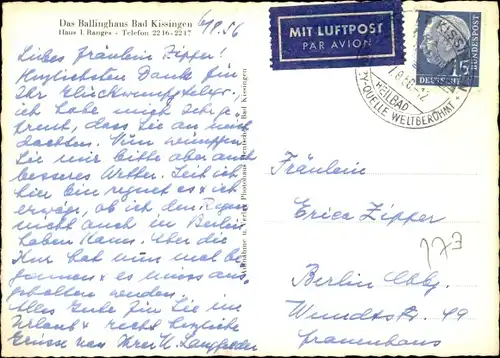 Das Ballinghaus Bad Kissingen
Haus 1. Ranges - Telefon 2216-2217
6/8.56
Liebes Fräulein Zipper!
Herzlichsten Dank für
Ihr Glückwunschtelegr.,
ich habe mich sehr ge-
freut, dass Sie an mich
dachten. Nun wünschen
Sie mir bitte aber auch
besseres Wetter. Seit ich
hier bin regnet es & ich
erwäge, ob ich den Regen
nicht auch in Berlin
haben kann. Aber die
Kur hat nun mal be-
gonnen & es muss aus-
gehalten werden.
Alles Gute für Sie im
Urlaub & recht herzliche
Grüsse von Ihrer
Aufnahme u. Verlag Photohaus Bad Kissingen
MIT LUFTPOST
PAR AVION
BAD KISSINGEN
8.56-12
HEILBAD
QUELLE WELTBERÜHMT
DEUTSCHE BUNDESPOST
15
Fräulein
Erica Zipper
173
Berlin Chbg.
Wundtstr. 49
Frauenhaus